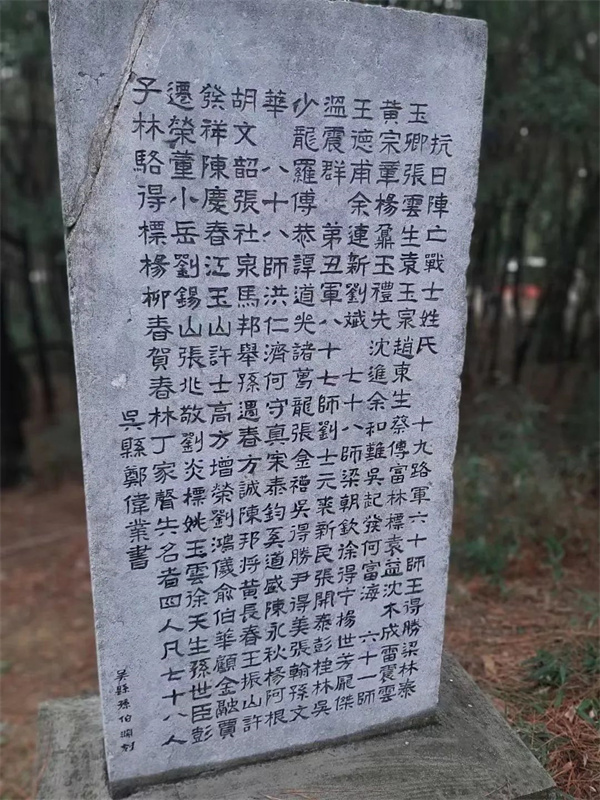 抗日陣亡戰士姓氏　十九路軍六十師王得勝梁林泰
玉卿張雲生袁玉宗趙東生蔡傅富林標袁益沈木成雷震雲
黃宗章楊鼐玉禮先沈進余和雞吳起發何富海　六十一師
王德甫余連新劉斌　七十八師梁朝欽徐得宁楊世芳嚴傑
溫震群　第五軍八十七師劉士元裘新民張開泰彭桂林吳
少龍羅傅恭譚道光諸萬龍張金禧吳得勝尹得美張翰孫文
華　八十八師洪仁濟何守真宋泰鈞奚道盛陳永秋楊阿根
胡文韶張社泉馬邦舉孫遇春方誠陳邦將黃長春王振山許
發祥陳慶春江玉山許士高方增榮劉鴻儀俞伯華顧金融賈
遷榮董小岳劉錫山張兆敬劉炎標姚玉雲徐天生孫世臣彭
子林駱得標楊柳春賀春林丁家聲失名者四人凡七十八人
吳縣鄭偉業書
吳縣孫伯淵刻